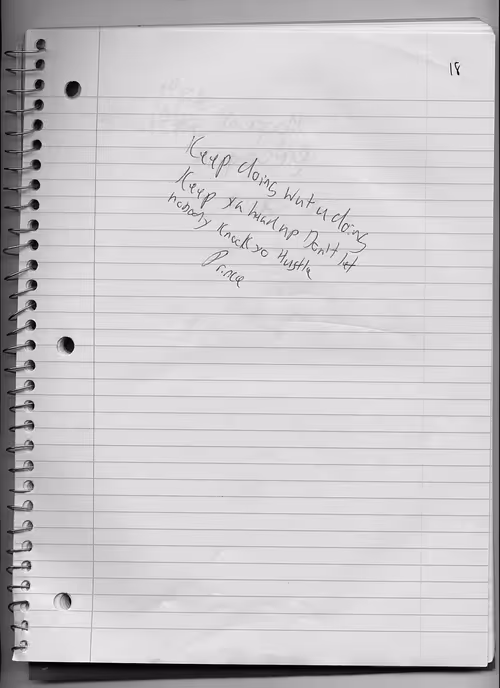 18
Keep doing wut u doing
Keep ya head up Don't let
nobody knock yo Hustle
Prince